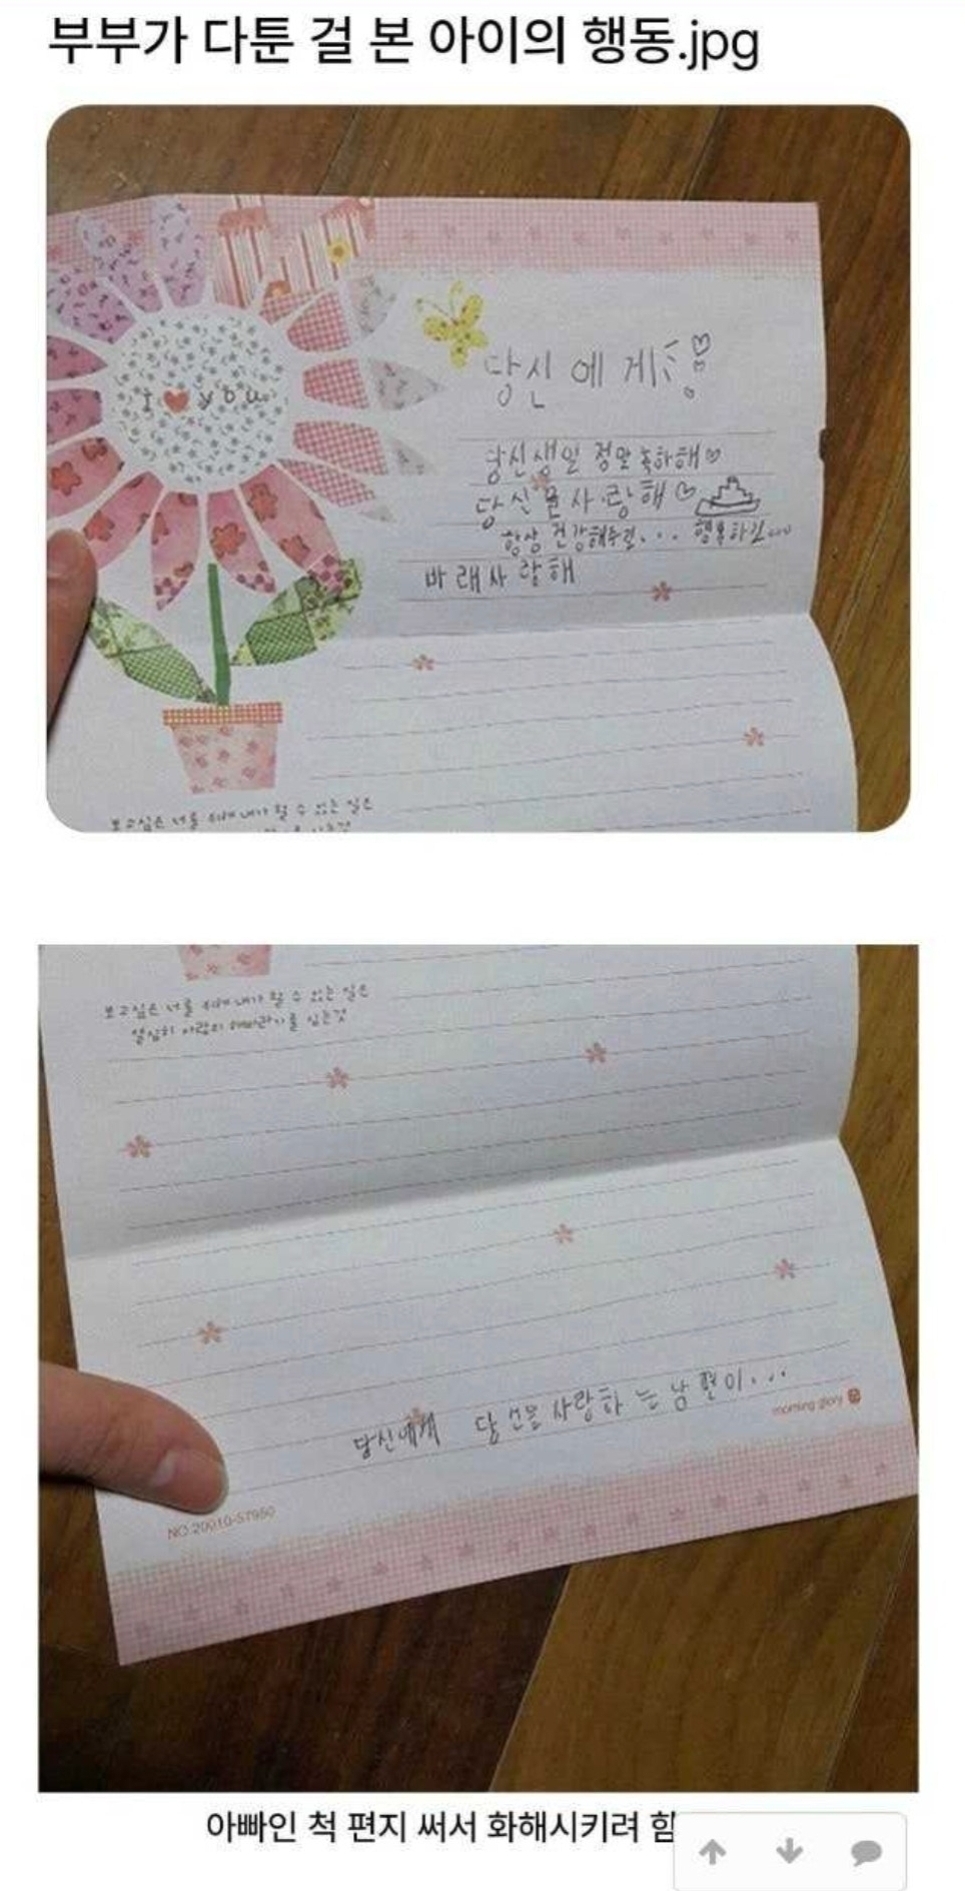 부부가 다툰 걸 본 아이의 행동.jpg
I ♥ you
당신에게
당신생일 정말 축하해♡
당신을 사랑해♡
항상 건강해주길... 행복하길...
바래사랑해
보고싶은 너를 위해 내가 할 수 있는 일은
보고싶은 너를 위해 내가 할 수 있는 일은
열심히 사랑의 해바라기를 심는것
당신에게 당신을 사랑하는 남편이...
morning glory
NO.20010-57950
아빠인 척 편지 써서 화해시키려 함